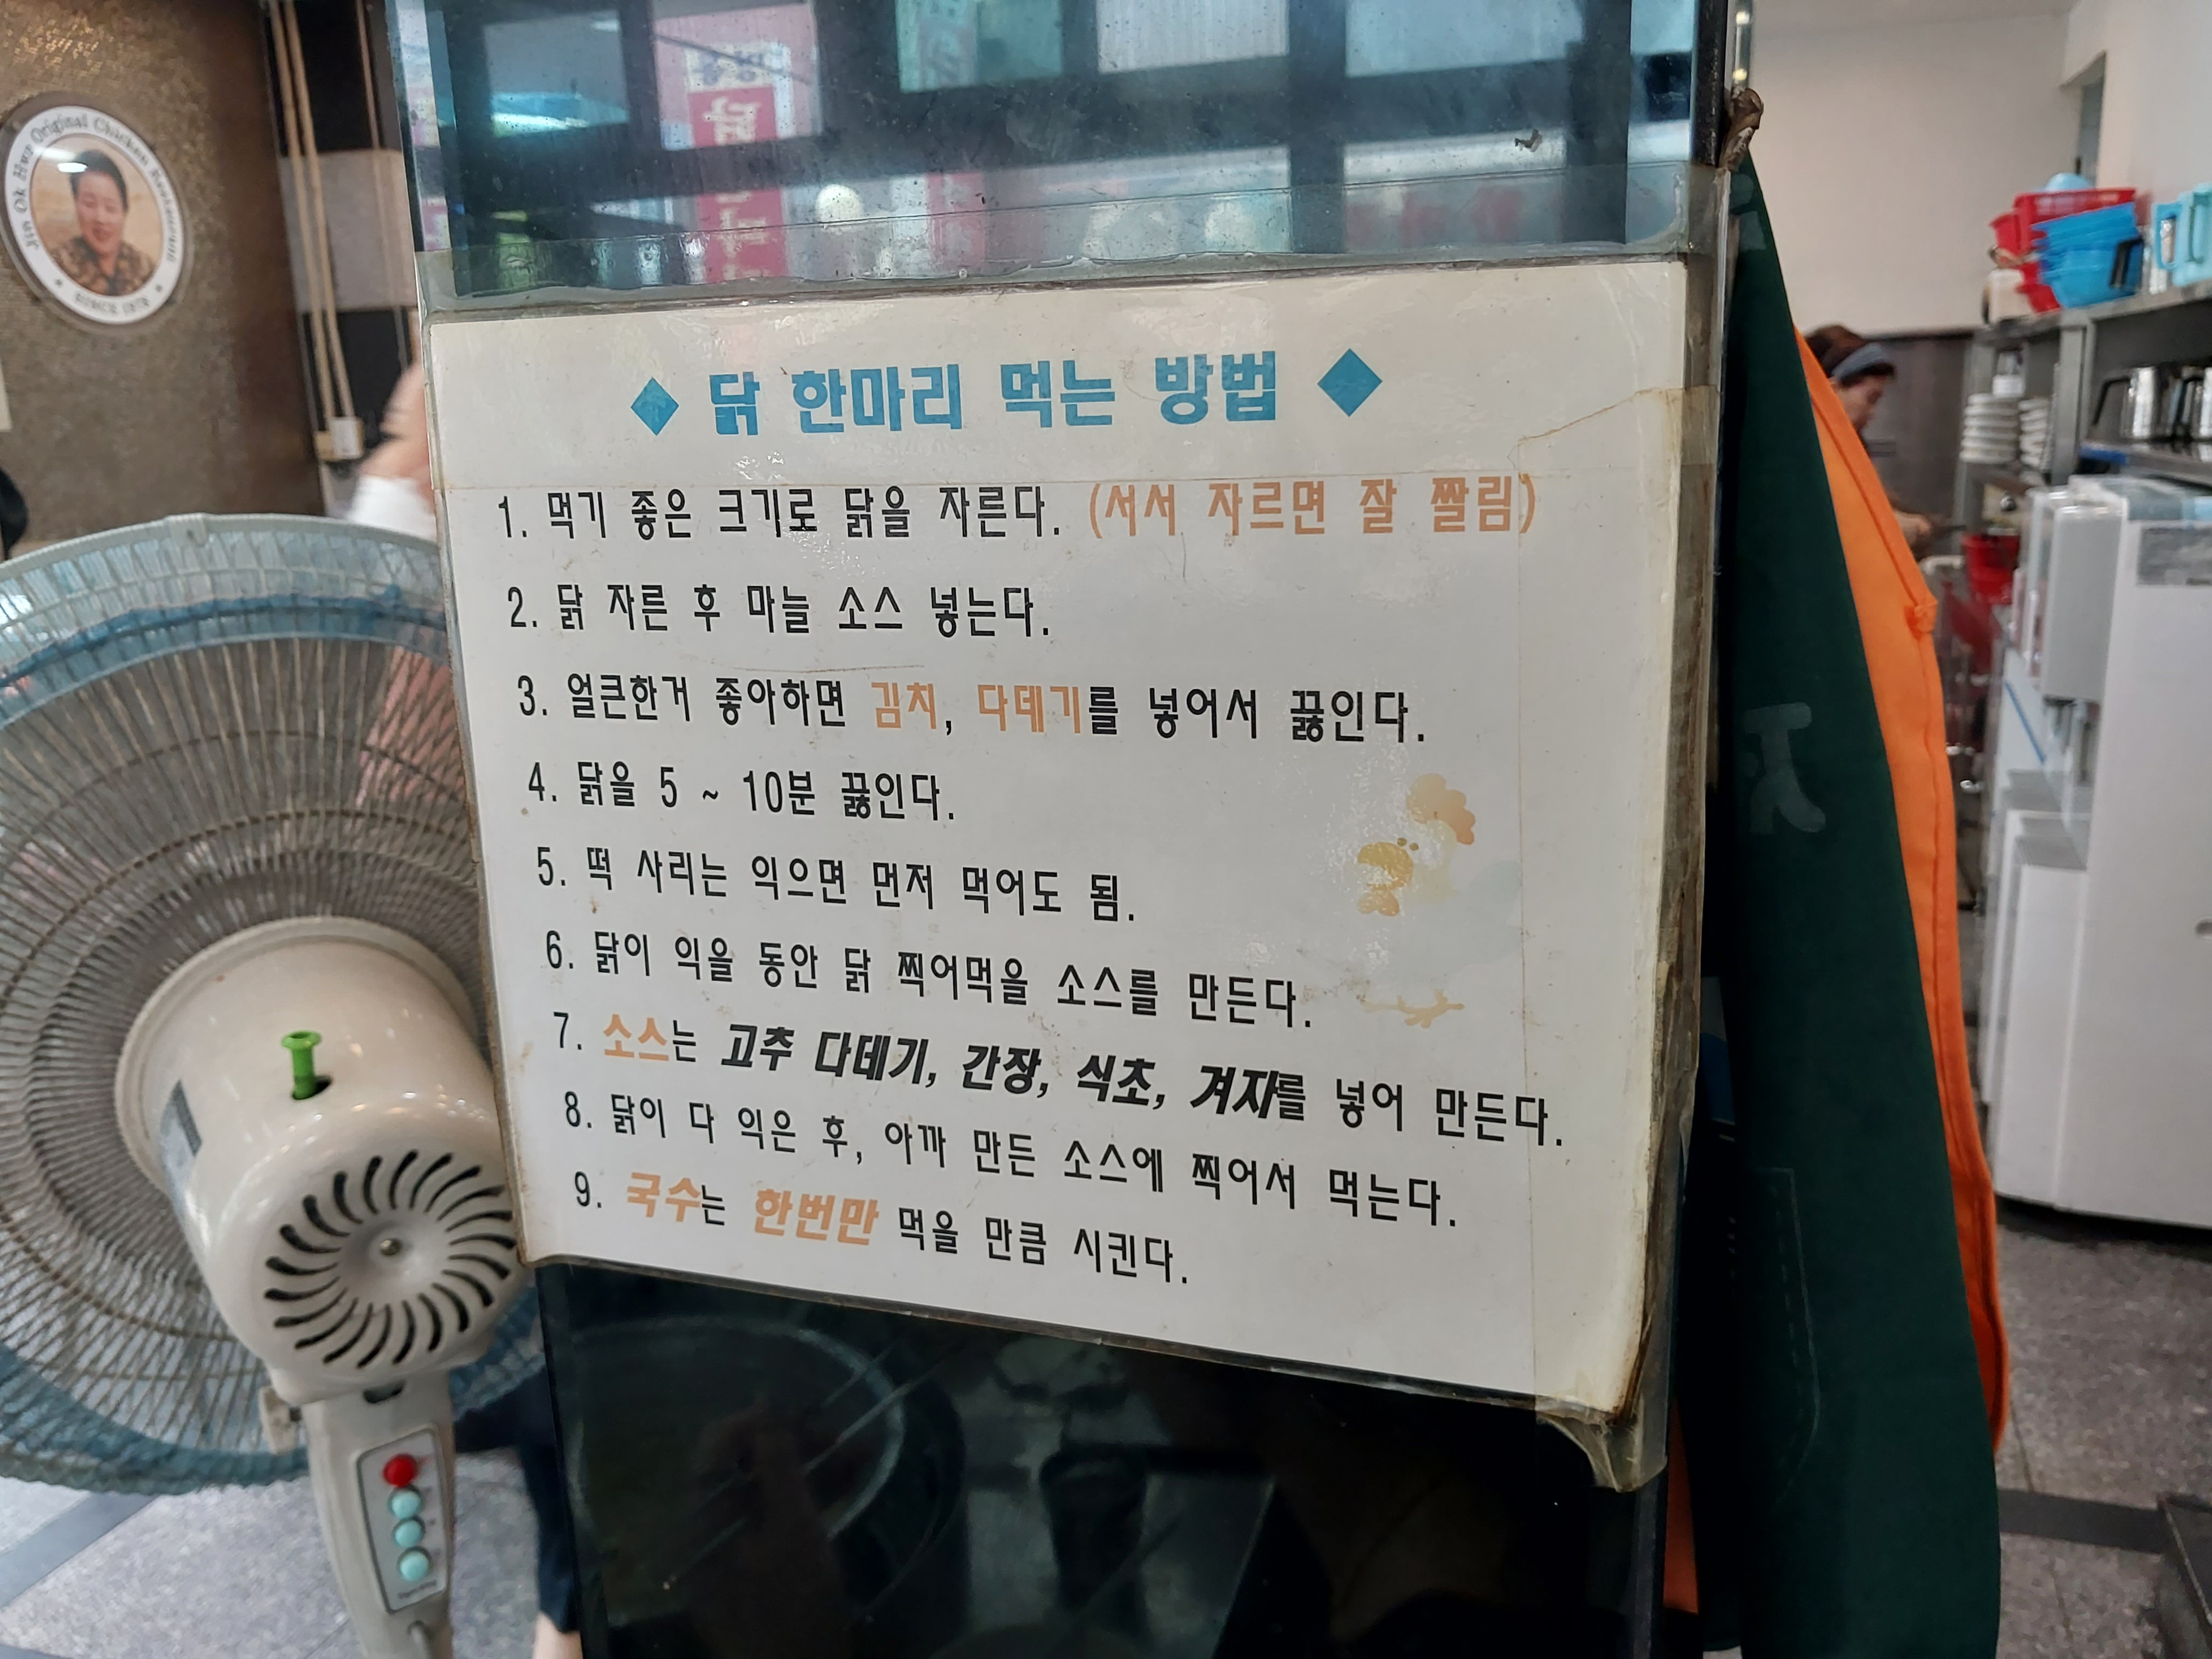 Jin Ok Hwa Original Chicken Restaurant
★ SINCE 1978 ★
◆ 닭 한마리 먹는 방법 ◆
1. 먹기 좋은 크기로 닭을 자른다. (서서 자르면 잘 짤림)
2. 닭 자른 후 마늘 소스 넣는다.
3. 얼큰한거 좋아하면 김치, 다데기를 넣어서 끓인다.
4. 닭을 5 ~ 10분 끓인다.
5. 떡 사리는 익으면 먼저 먹어도 됨.
6. 닭이 익을 동안 닭 찍어먹을 소스를 만든다.
7. 소스는 고추 다데기, 간장, 식초, 겨자를 넣어 만든다.
8. 닭이 다 익은 후, 아까 만든 소스에 찍어서 먹는다.
9. 국수는 한번만 먹을 만큼 시킨다.